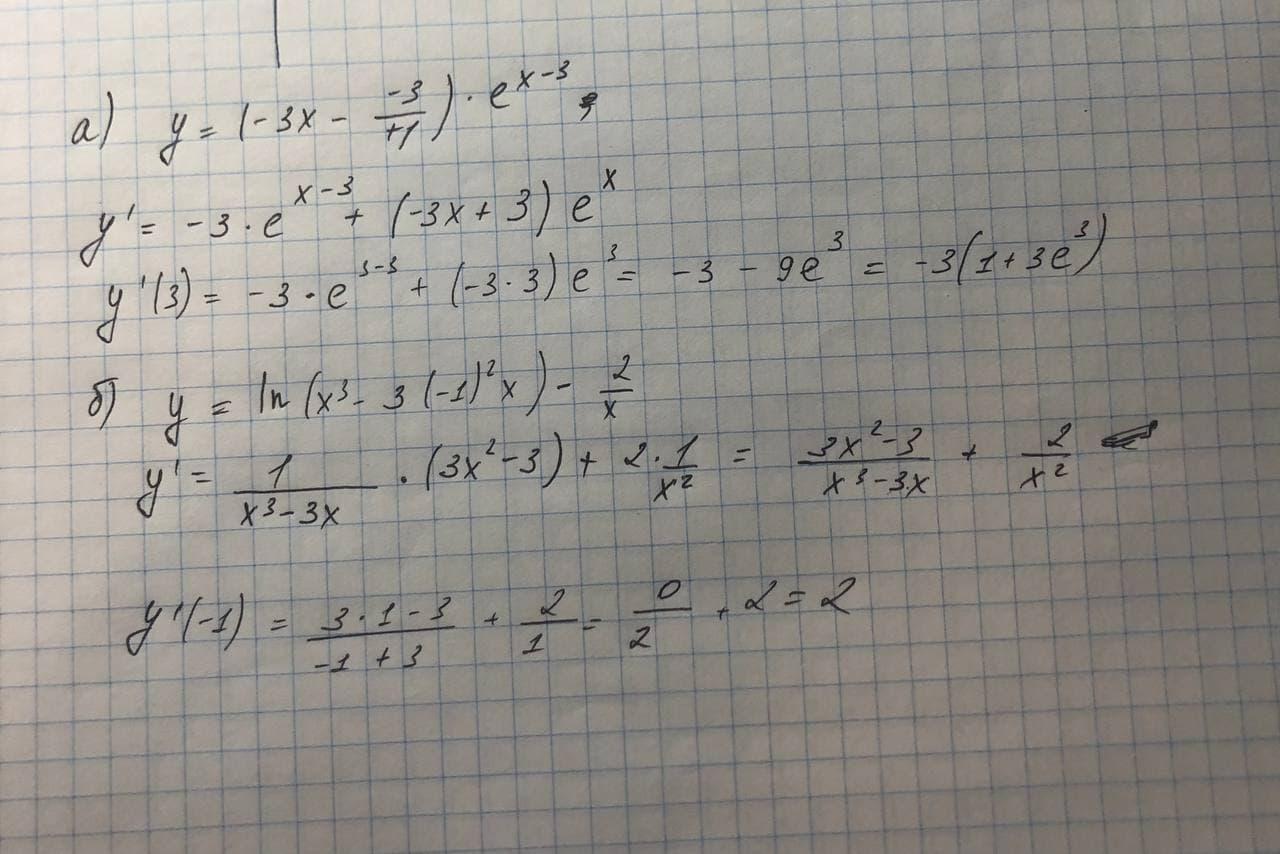 а) y = (-3x - \frac{-3}{+1}) · e^{x-3}
y' = -3 · e^{x-3} + (-3x + 3) e^x
y'(3) = -3 · e^{3-3} + (-3·3) e^3 = -3 - 9e^3 = -3(1+3e^3)
б) y = ln(x^3 - 3(-1)^2 x) - \frac{2}{x}
y' = \frac{1}{x^3-3x} · (3x^2-3) + 2·\frac{1}{x^2} = \frac{3x^2-3}{x^3-3x} + \frac{2}{x^2}
y'(-1) = \frac{3·1-3}{-1+3} + \frac{2}{1} = \frac{0}{2} + 2 = 2